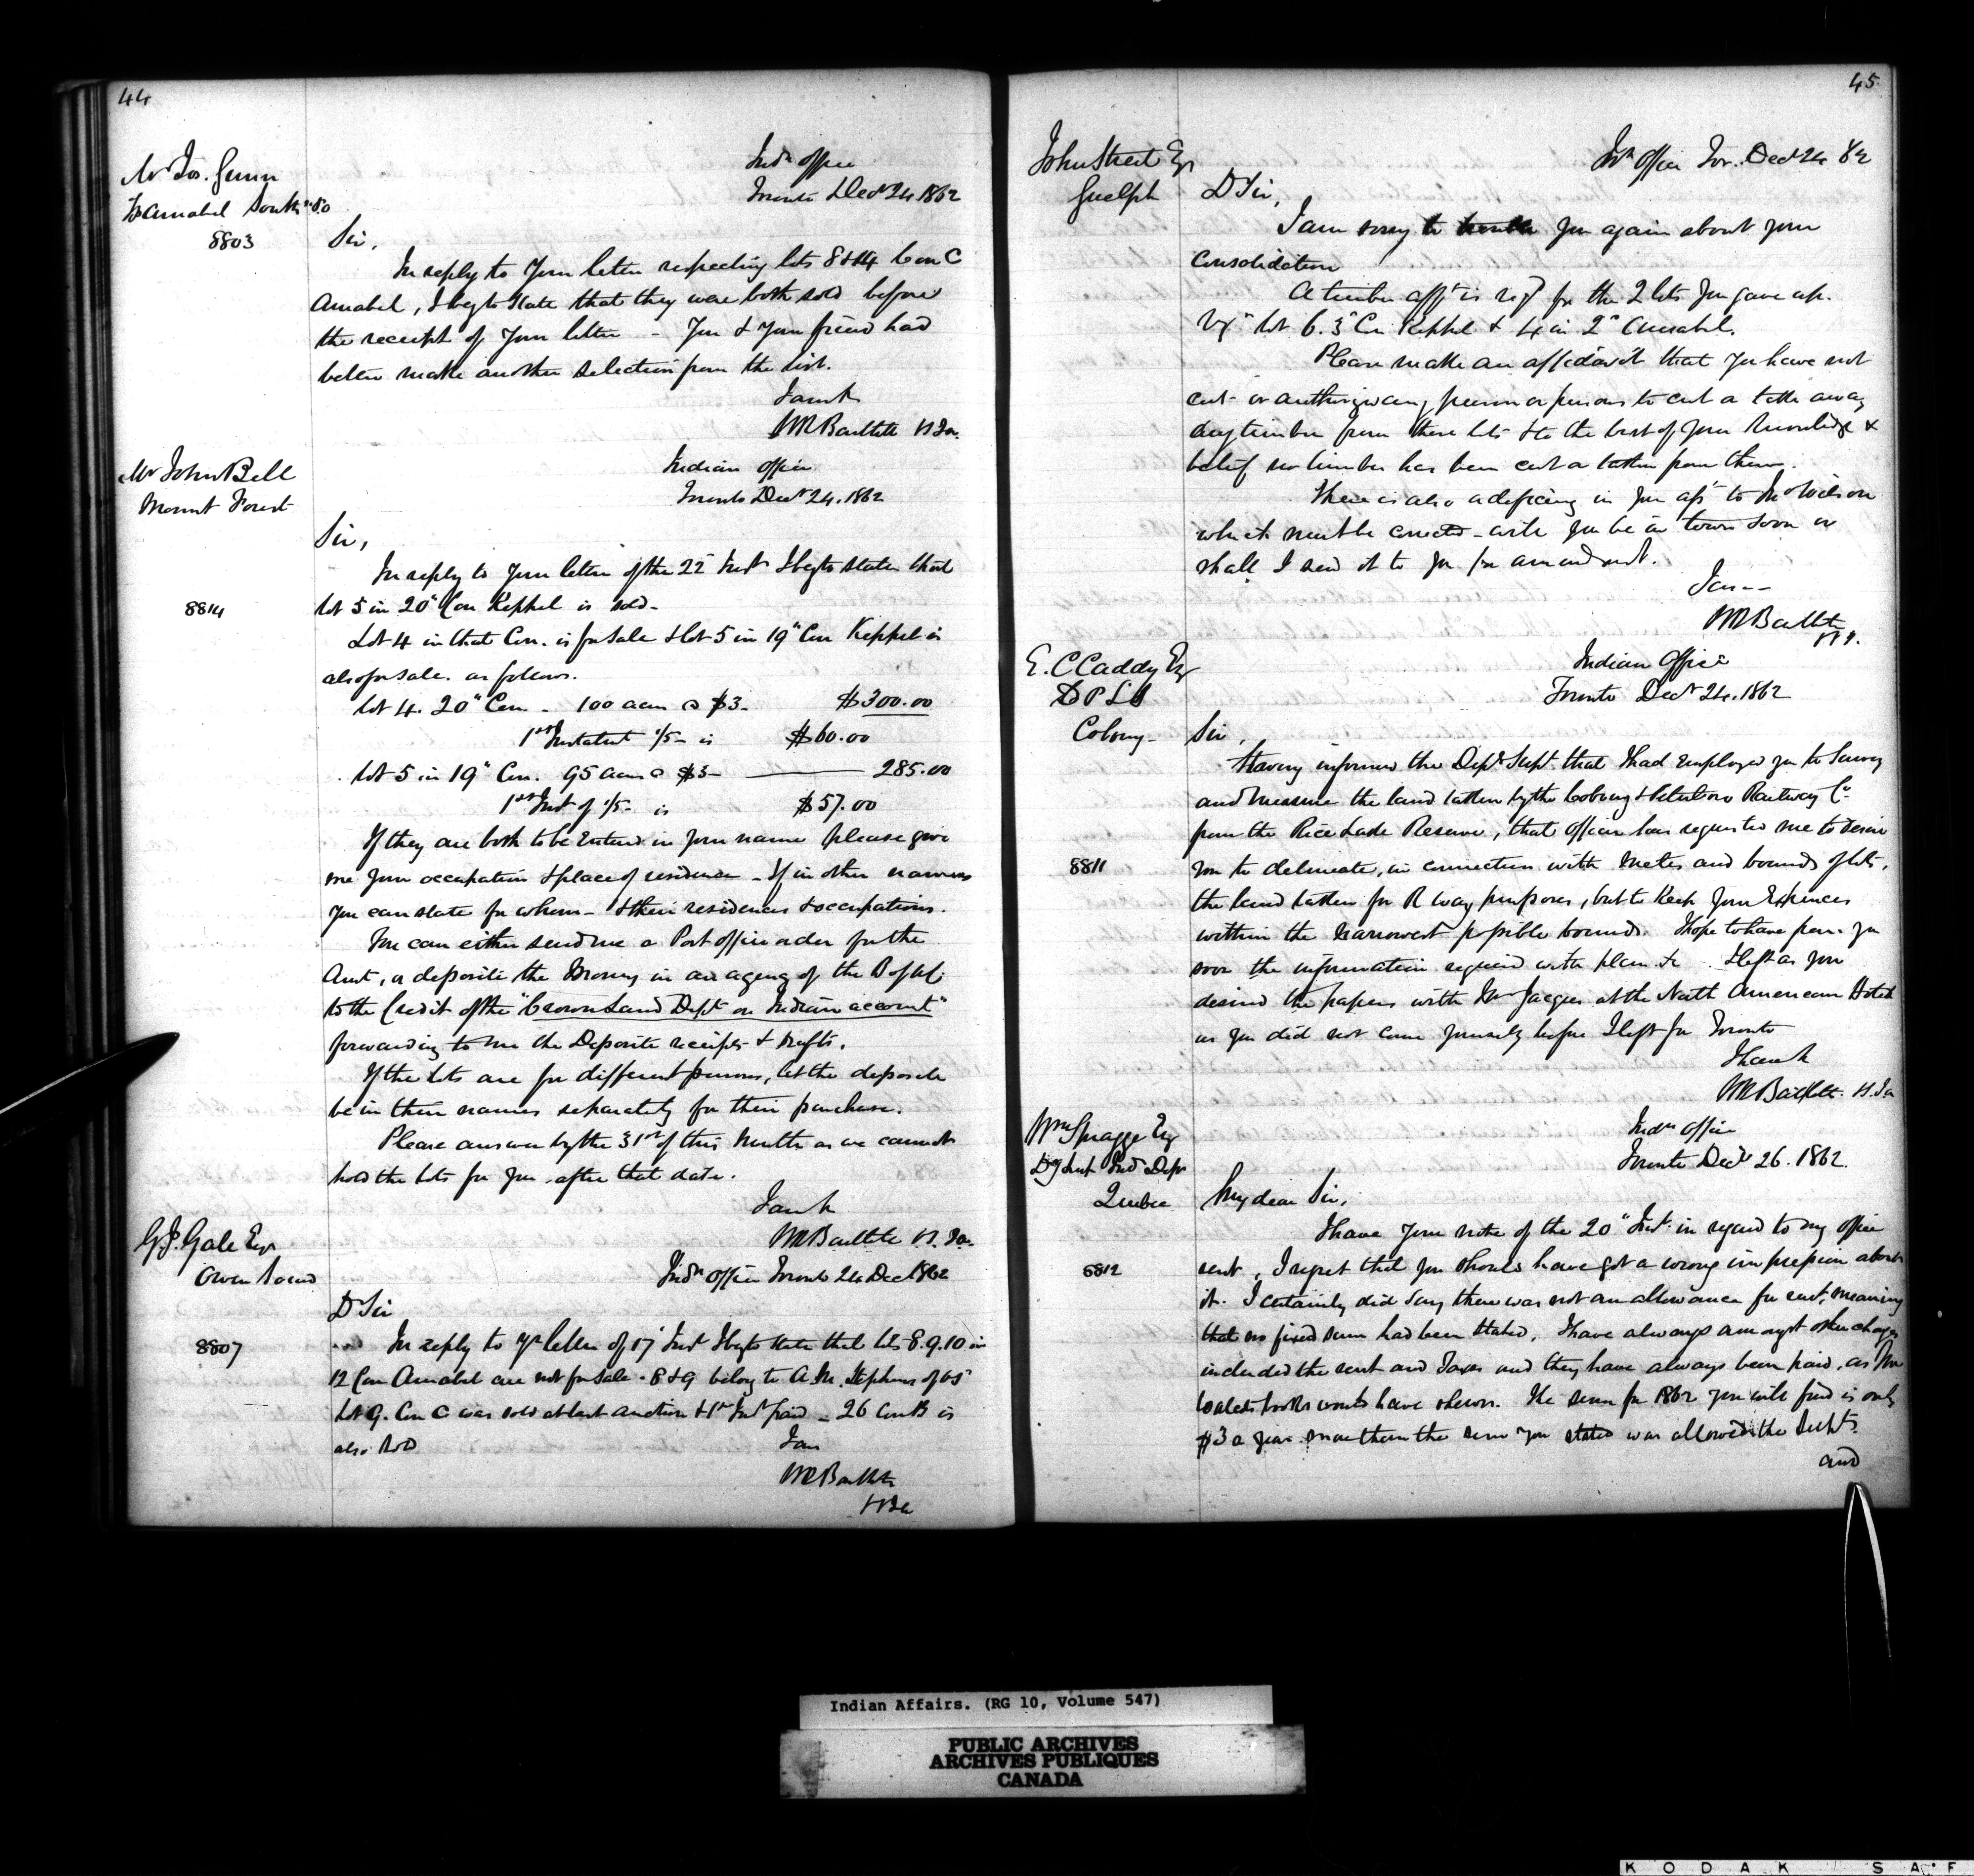 44
Mr Jos. Gunn
Amabel South P.O
8803
Indn Office
Toronto Decr 24 1862
Sir,
In reply to your letter respecting lots 8 & 14 Con C
Amabel, I beg to state that they were both sold before
the receipt of your letter – You & your friend had
better make another selection from the list.
I am &c
WR Bartlett
Mr John Bell
Mount Forest
Indian Office
Toronto Decr 24. 1862
Sir,
In reply to your letter of the 22 Inst I beg to state that
8814
lot 5 in 20" Con Keppel is sold –
Lot 4 in that Con. is for sale & lot 5 in 19" Con Keppel is
also for sale. as follows.
lot 4. 20" Con – 100 acres @ $3 – $300.00
1st Instalmt 1/5 – is $60.00
lot 5 in 19" Con. 95 acres @ $3 – 285.00
1st Inst of 1/5 – is $57.00
If they are both to be entered in your name please give
me your occupation & place of residence – If in other names
you can state for whom – & their residences & occupations.
You can either send me a Post office order for the
Amt, or deposite the money in an agency of the B of U.C.
to the Credit of the "Crown Land Dept on Indian account"
forwarding to me the Deposite receipts & drafts.
If the lots are for different persons, let the deposite
be in their names separately for their purchase.
Please answer by the 31st of this month as we cannot
hold the lots for you after that date.
I am &c
WR Bartlett
G.J. Gale Esqr
Owen Sound
Indn Office Toronto 24 Dec 1862
D Sir
8807
In reply to yr letter of 17 Inst I beg to state that lots 8.9.10 in
12 Con Amabel are not for sale – 8 & 9 belong to A.M. Stephens of O.S
Lot 9. Con C was sold at last auction & 1st Inst paid – 26 Con B is
also sold
I am
WR Bartlett
45
John Street Esqr
Guelph
In Office Tor. Dec 24 62
D Sir,
I am sorry to trouble you again about your
Consolidation
A timber afft is reqd for the 2 lots you gave up.
Vizt lot 6. 3" Con Keppel & 4 in 2" Amabel.
Please make an affidavit that you have not
cut or authorizd any person or persons to cut or take away
any timber from these lots & to the best of your knowledge &
belief no timber has been cut or taken from them.
There is also a deficiency in your asst to Wilson
which must be corrected – will you be in town soon or
shall I send it to you for amendment.
I am –
WR Bartlett
E. C Caddy Esqr
D P L S
Cobourg –
Indian Office
Toronto Decr 24. 1862
Sir,
Having informed the Depy Supt. that I had employed you to survey
and measure the land taken by the Cobourg & Peterboro Railway Co
8811
from the Rice Lake Reserve, that officer has requested me to desire
you to delineate, in connection with metes and bounds of lots,
the land taken for R way purposes, but to keep your expences
within the narrowest possible bounds. I hope to have from you
soon the information required with plan &c I left as you
desired the papers with Mr Jacques at the North American Hotel
as you did not come yourself before I left for Toronto
I have &c
WR Bartlett
Wm Spragge Esq
Dy Supt Ind Dept
Quebec
Indn Office
Toronto Decr 26. 1862.
My dear Sir,
I have your note of the 20" Inst. in regard to my office
8812
rent, I regret that you should have got a wrong impression about
it. I certainly did say there was not an allowance for rent, meaning
that no fixed sum had been stated. I have always amongst other charges
included the rent and taxes and they have always been paid, as
books would have shewn. The sum for 1862 you will find is only
$3 a year more than the sum you stated was allowed the Supts.
and
Indian Affairs. (RG 10, Volume 547)
PUBLIC ARCHIVES
ARCHIVES PUBLIQUES
CANADA
KODAK SAF